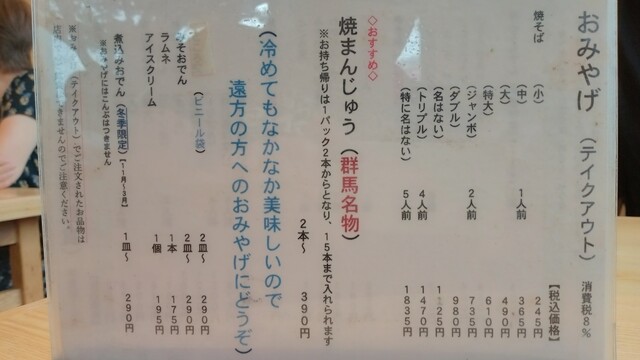 おみやげ（テイクアウト） 消費税8％
【税込価格】
焼そば （小） 245円
（中） 1人前 365円
（大） 490円
（特大） 610円
（ジャンボ） 2人前 735円
（ダブル） 980円
（名はない）
（トリプル） 4人前 1470円
（特に名はない） 5人前 1835円
◇おすすめ◇
焼まんじゅう（群馬名物） 2本～ 390円
※お持ち帰りは1パック2本からとなり、15本まで入れられます
（冷めてもなかなか美味しいので
遠方の方へのおみやげにどうぞ）
（ビニール袋） 2皿～ 290円
みそおでん 2皿～ 290円
ラムネ 1本 175円
アイスクリーム 1個 195円
煮込みおでん（冬季限定）【11月～3月】 1皿～ 290円
※おみやげにはこんぶはつきません
（テイクアウト）でご注文されたお品物は
店内 できませんのでご注意ください。